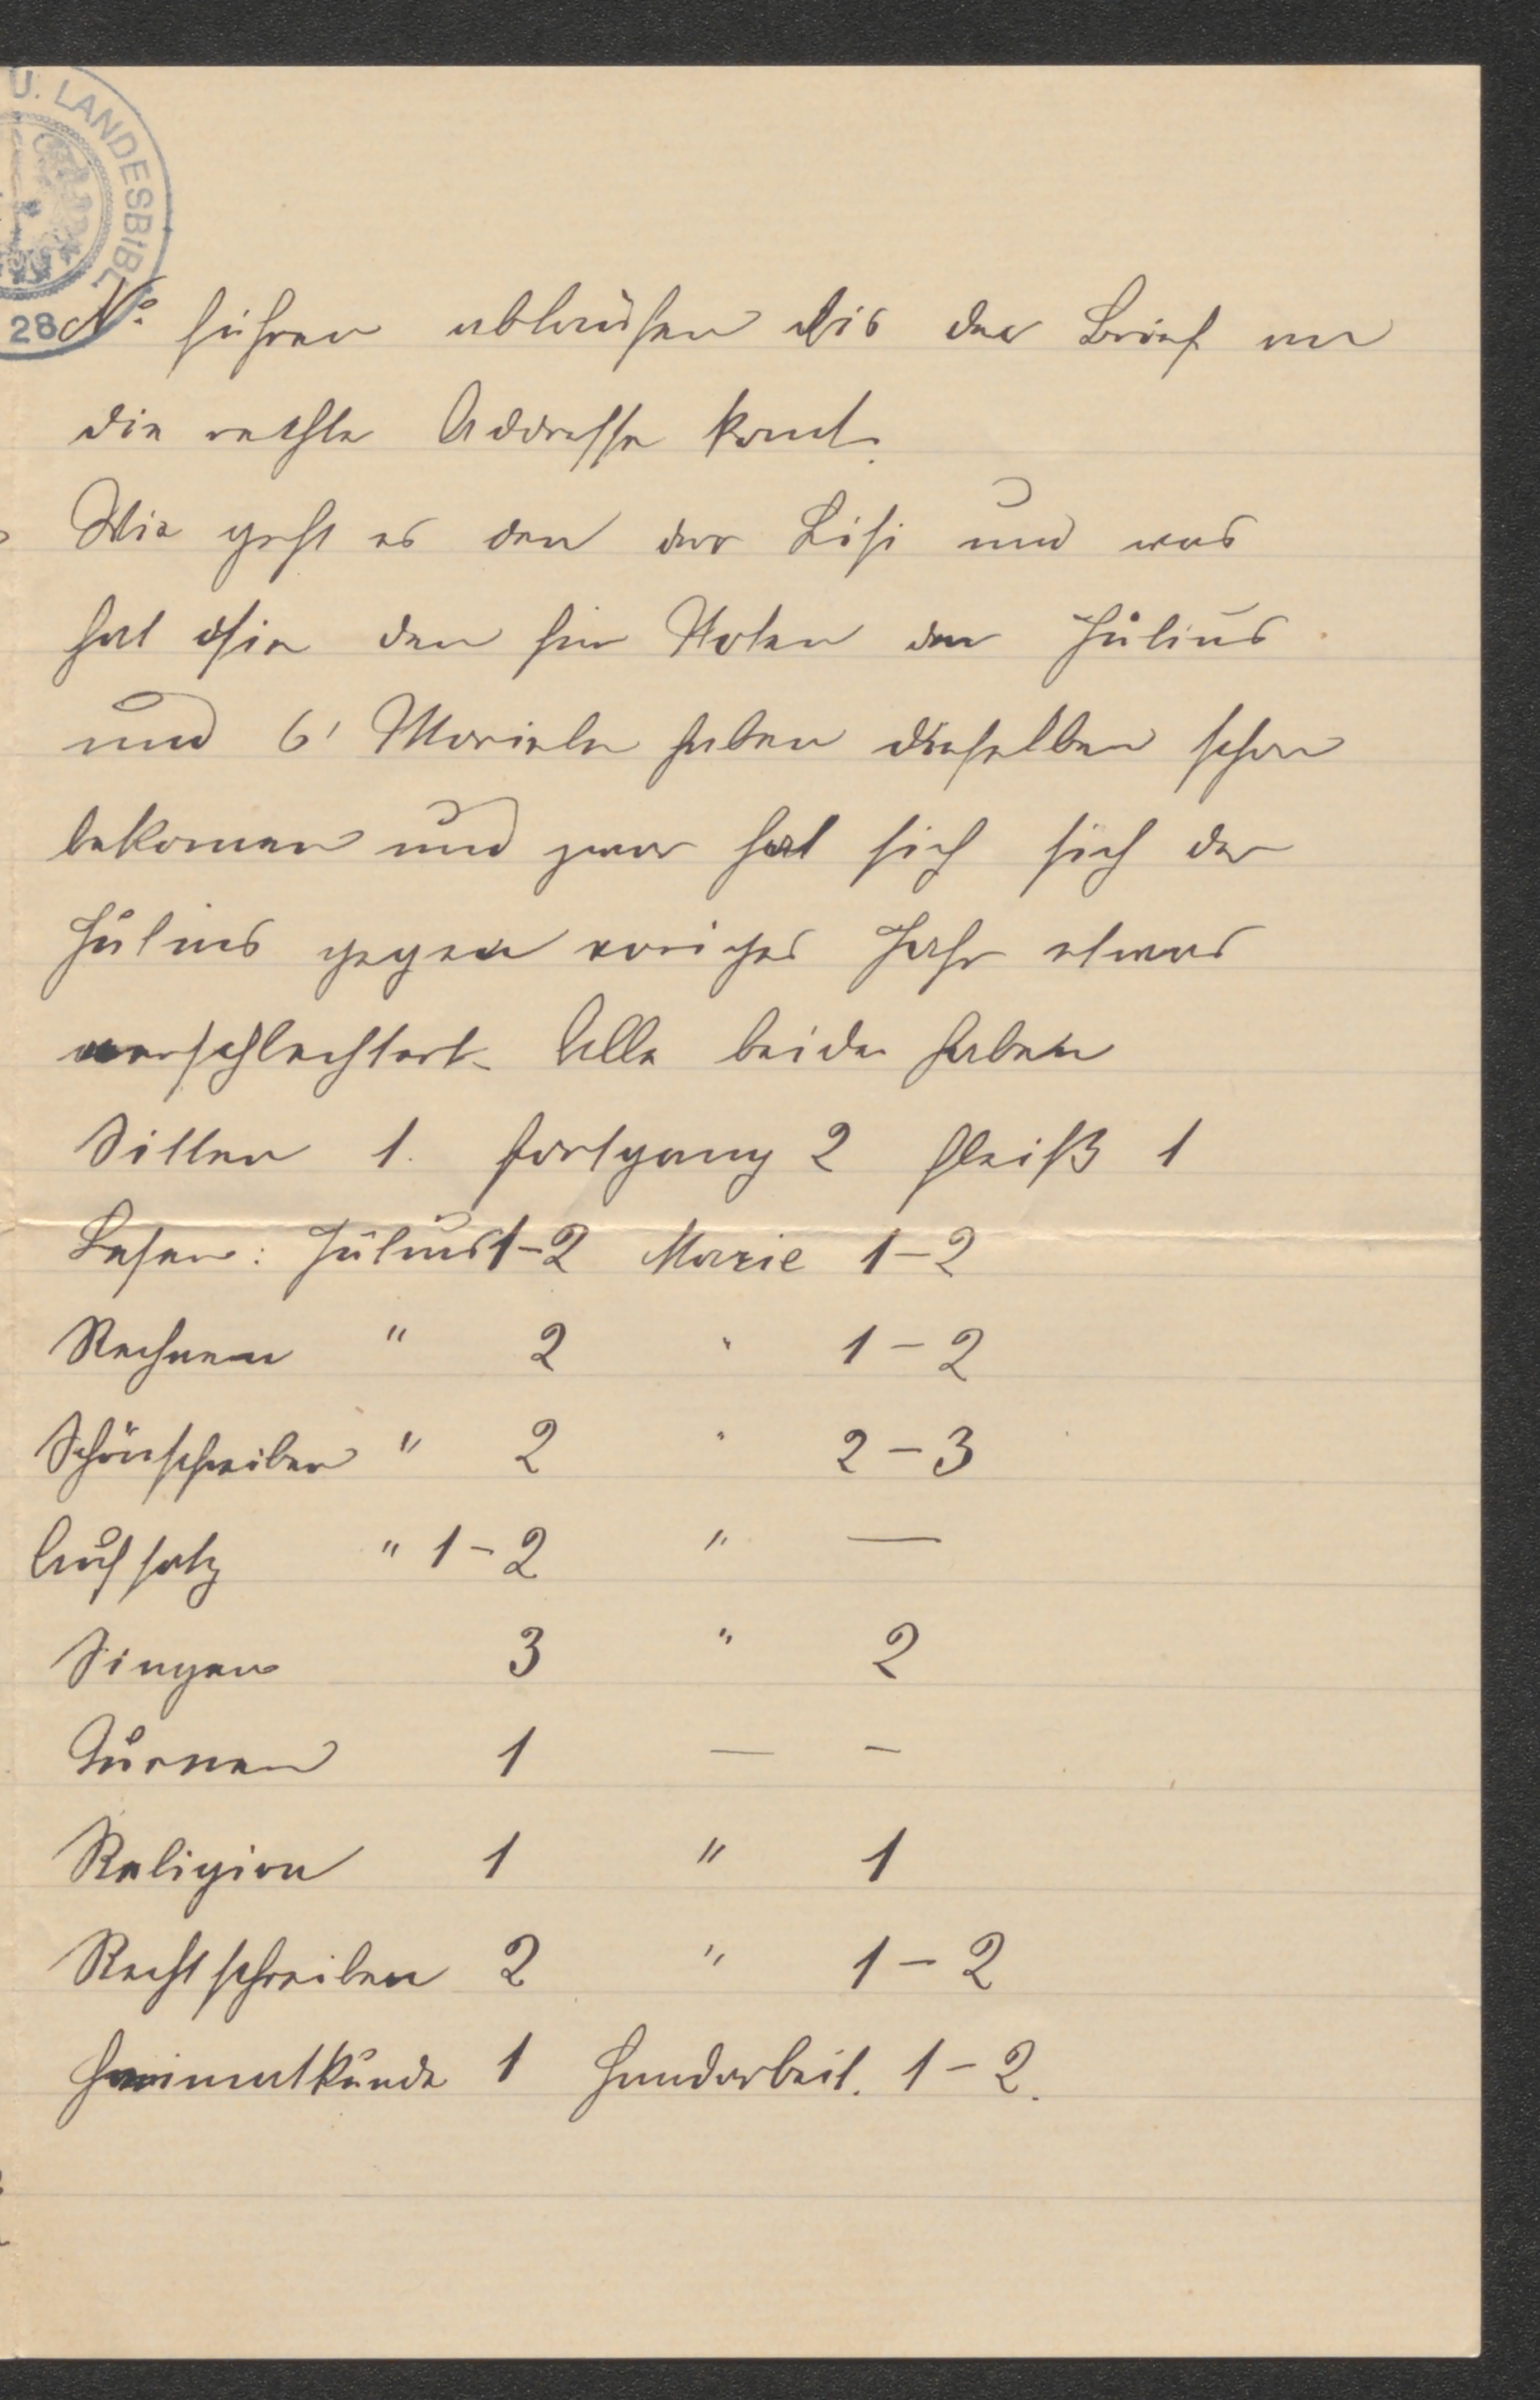 U. LANDESBIBL
28
No führen ablaufen bis der Brief an
die rechte Addresse komt.
Wie geht es den der Lisi und was
hat sie den für Noten der Julius
und 's Mariele haben dieselben schon
bekomen und zwar hat sich sich der
Julius gegen voriges Jahr etwas
verschlechtert. Alle beide haben
Sitten 1. Fortgang 2 Fleiß 1
Lesen: Julius 1-2 Marie 1-2
Rechnen " 2 " 1-2
Schönschreiben " 2 " 2-3
Aufsatz " 1-2 " —
Singen 3 " 2
Turnen 1 — –
Religion 1 " 1
Rechtschreiben 2 " 1-2
Heimatkunde 1 Handarbeit. 1-2.